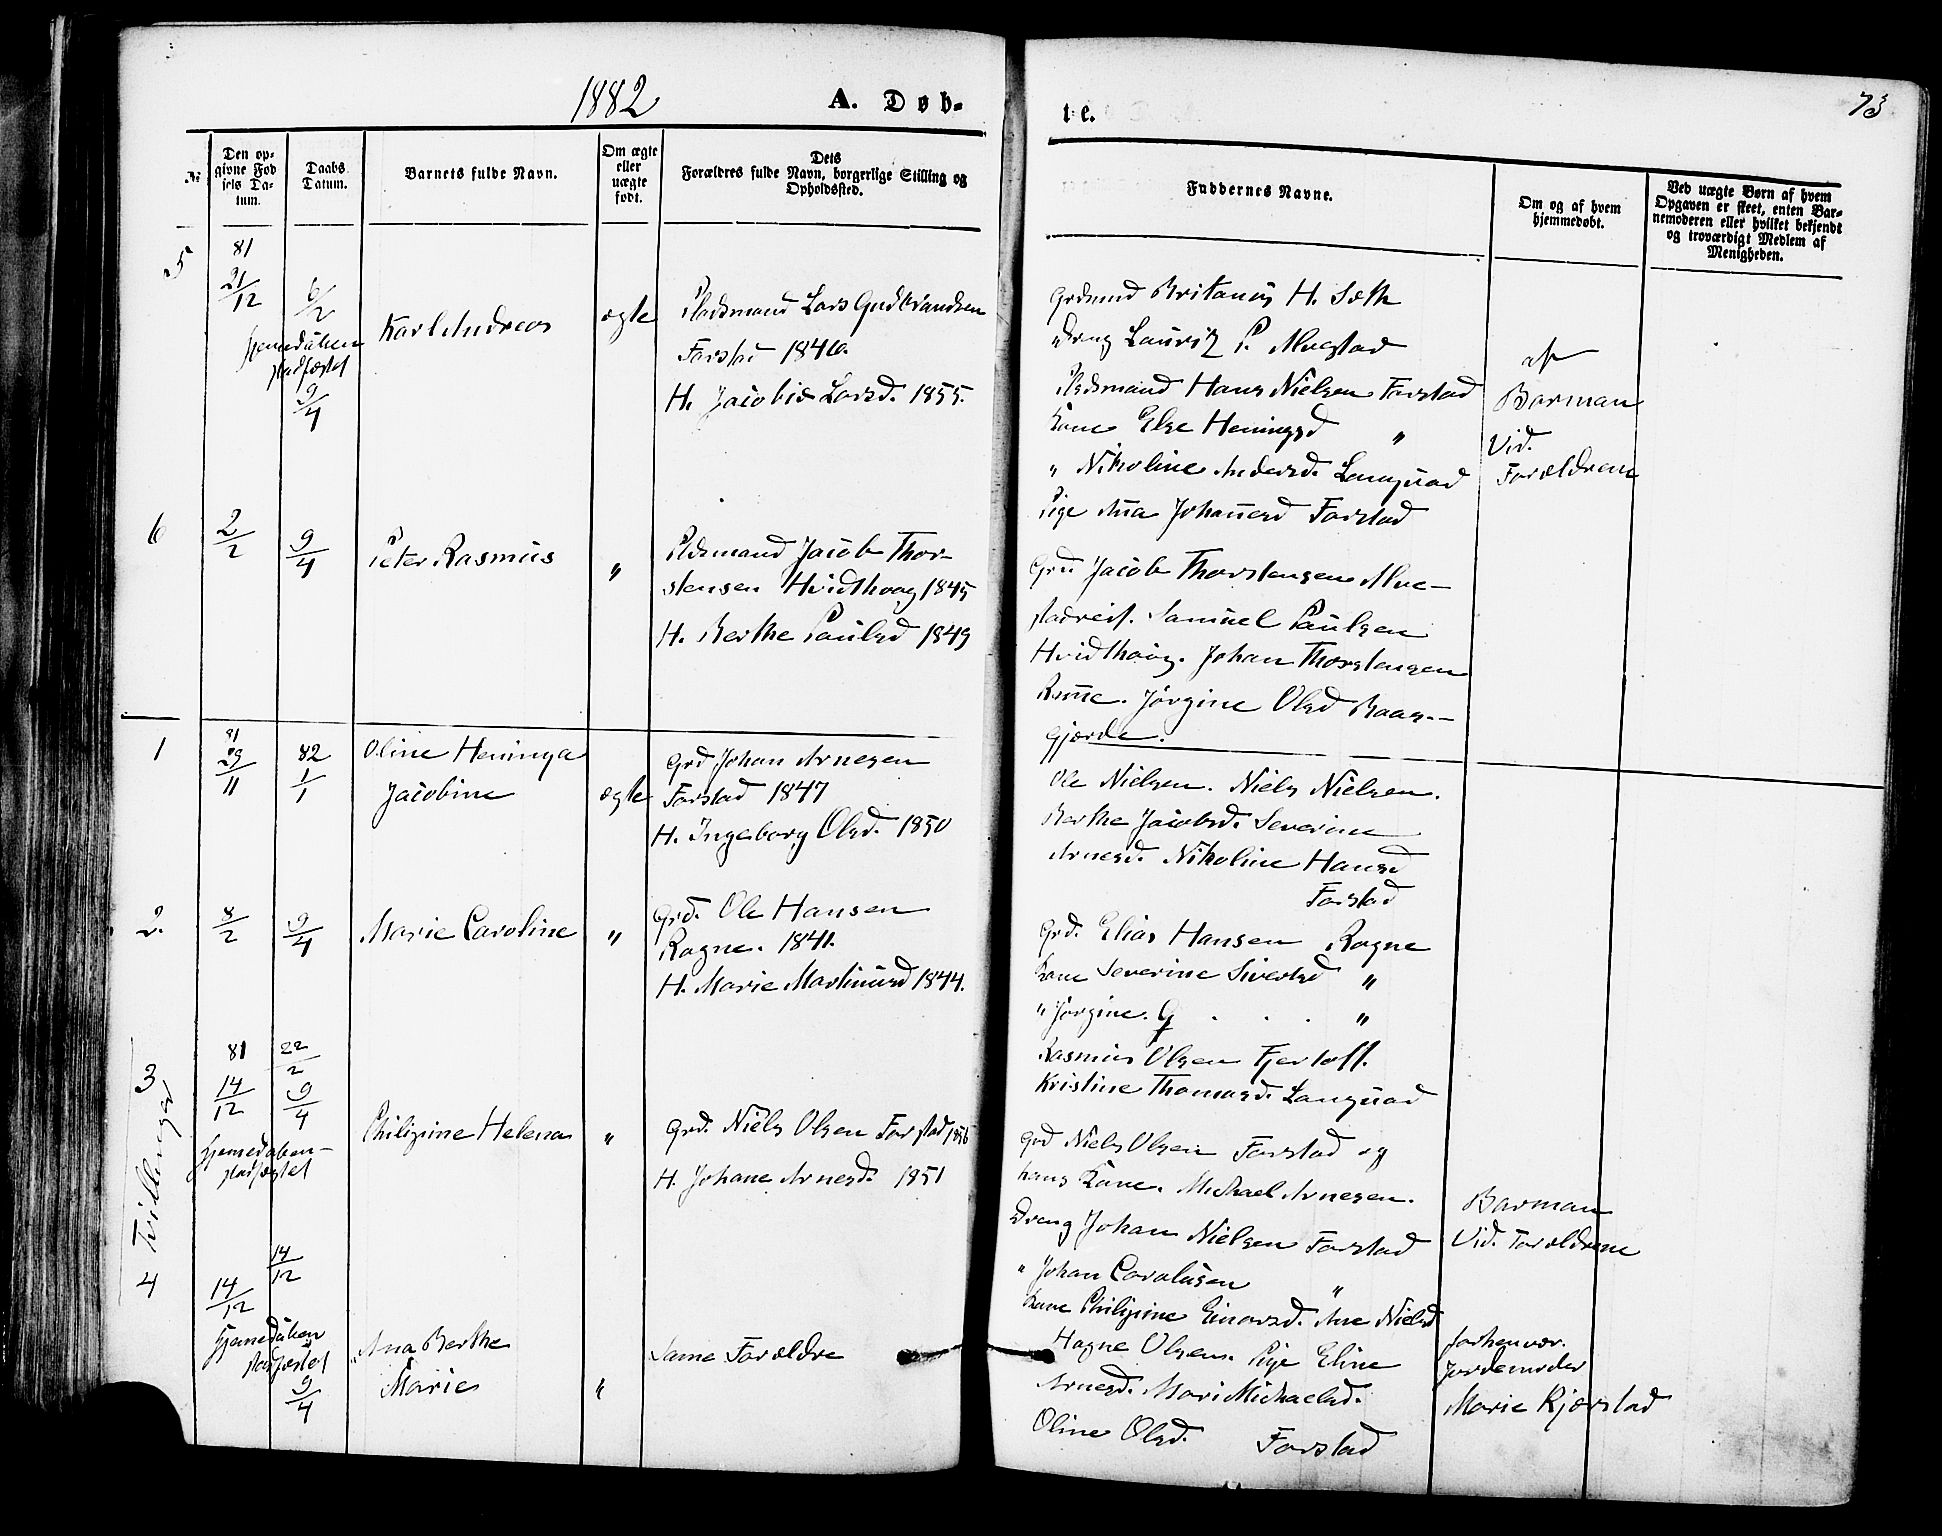 1882
A. Døb-
te.
73
№
Den op-
givne Fød
sels Da-
tum.
Daabs
Datum.
Barnets fulde Navn.
Om ægte
eller
uægte
født.
Dets
Forældres fulde Navn, borgerlige Stilling og
Opholdssted.
Faddernes Navne.
Om og af hvem
hjemmedøbt.
Ved uægte Børn af hvem
Opgaven er skeet, enten Bar-
nemoderen eller hvilket bekjendt
og troværdigt Medlem af
Menigheden.
5
81
21/12
6/2
hjemedåben
stadfæstet
9/4
Karl Andreas
ægte
Pladsmand Lars Gudbrandsen
1846.
H. Jacobie Larsd. 1855.
Grdmnd H. Sæth
Dreng Lauritz P. Alvestad
Pladsmand Hans Nielsen Farstad
Kone Else Heningsd "
" Nikoline Andersd. Langvad
Pige Ana Johansd Farstad
af
Barman
Vid.
Forældrene
6
2/2
9/4
Peter Rasmus
"
Pldsmand Jacob Thor-
stensen Hvidthoug 1845
H. Berthe Paulsd 1849
Grd Jacob Thorstensen Alve-
stadreit. Samuel Paulsen
Hvidthoug. Johan Thorstensen
Jørgine Olsd Baas-
gjerde.
1
81
29/11
82
1/1
Oline Heninga
Jacobine
ægte
Grd Johan Arnesen
Farstad 1847
H. Ingeborg Olsd. 1850
Ole Nielsen. Niels Nielsen.
Berthe Jacobsd. Severine
Arnesd. Nikoline Hansd
Farstad
2.
8/2
9/4
Marie Caroline
"
Grd. Ole Hansen
Rogne. 1841.
H. Marie Martinusd 1844.
Grd. Elias Hansen Rogne
Kone Severine Sivertsd "
" Jørgine. G . . . "
Rasmus Olsen Fjertoft.
Kristine Thomasd. Langvad
Tvillinger
3
81
14/12
22/2
9/4
hjemedaben-
stadfæstet
Philipine Helena
"
Grd. Niels Olsen Farstad 1856
H. Johane Arnesd. 1851
Grd Niels Olsen Farstad og
hans Kone. Michael Arnesen.
Dreng Johan Nielsen Farstad
" Johan Carolusen "
Kone Philipine Einarsd. Ane Nielsd
Barman
Vid. Forældrene
4
14/12
14/12
hjemedåben
stadfæstet
9/4
Ana Berthe
Marie
"
Same Forældre
Hagne Olsen. Pige Eline
Arnesd. Mari Michaelsd.
Oline Olsd. Farstad
forhenvær.
Jordemoder
Marie Kjærstad